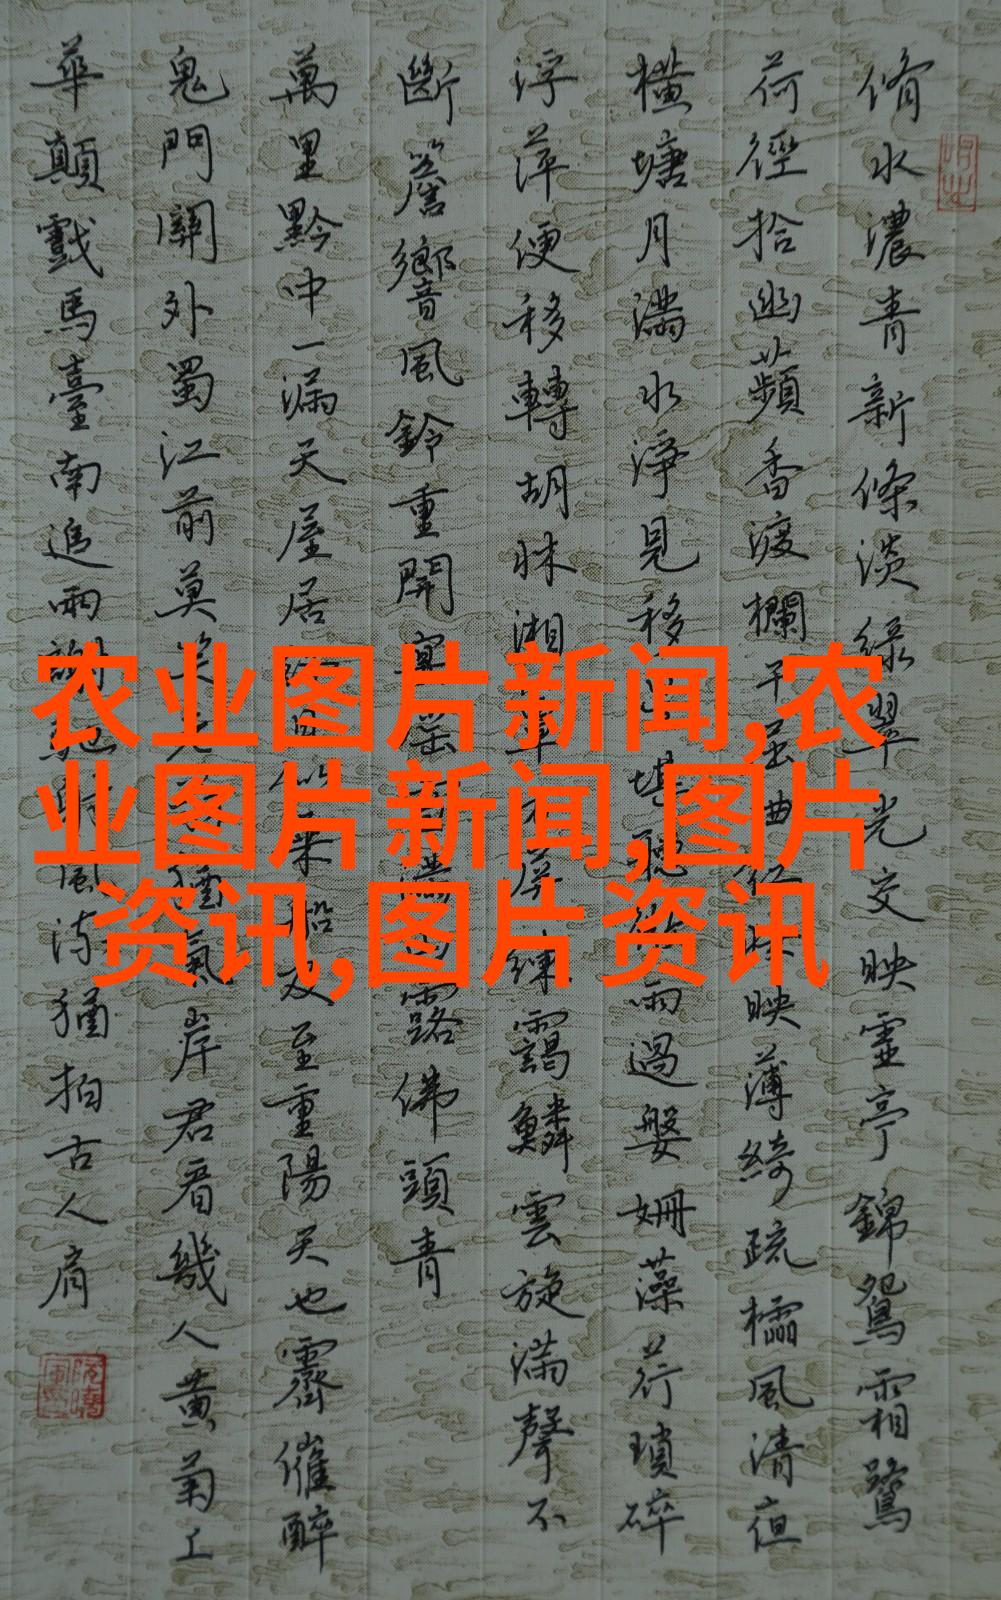 脩水濃青新條淡綠翠光交映虛亭錦鴛霜鷺
荷徑拾幽蘋香渡欄干屈曲映薄綺疏櫺風清但
橫塘月滿水淨見移堪聽雨過媻姍藻荇瑣碎
浮萍便移轉胡牀湘簟屏練靄鱗雲旋滿聲不
斷簷響風鈴重開宴瑤滿露佛頭青
萬里黔中一漏天屋居日似乘船及至重陽天也霽催醉
鬼門關外蜀江前莫笑老猶氣岸君看幾人黃菊上
華顛戲馬臺南追兩謝馳射風流猶拍古人肩
农业图片新闻,农
业图片新闻,图片
资讯,图片资讯